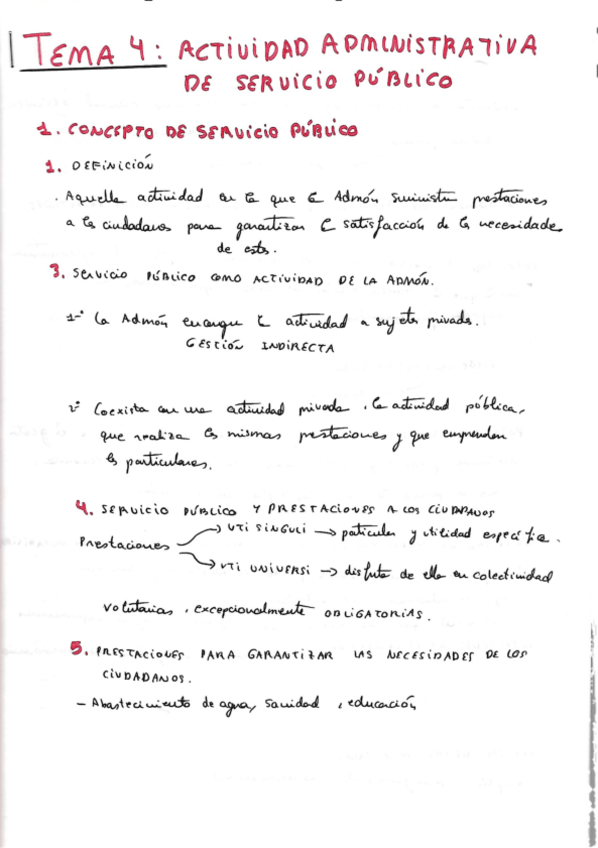 TEMA 4: ACTIVIDAD ADMINISTRATIVA
DE SERVICIO PÚBLICO
1. CONCEPTO DE SERVICIO PÚBLICO
1. DEFINICIÓN
. Aquella actividad en la que la Admón suministra prestaciones
a los ciudadanos para garantizar la satisfacción de las necesidades
de estos.
3. SERVICIO PÚBLICO COMO ACTIVIDAD DE LA ADMÓN.
1- La Admón encargue la actividad a sujetos privados.
GESTIÓN INDIRECTA
2- Coexista con una actividad privada, la actividad pública,
que realiza las mismas prestaciones y que emprenden
los particulares.
4. SERVICIO PÚBLICO Y PRESTACIONES A LOS CIUDADANOS
Prestaciones
→ UTI SINGULI → particular y utilidad específica.
→ UTI UNIVERSI → disfrute de ella en colectividad
Voluntarias, excepcionalmente OBLIGATORIAS.
5. PRESTACIONES PARA GARANTIZAR LAS NECESIDADES DE LOS
CIUDADANOS.
- Abastecimiento de agua, sanidad, educación